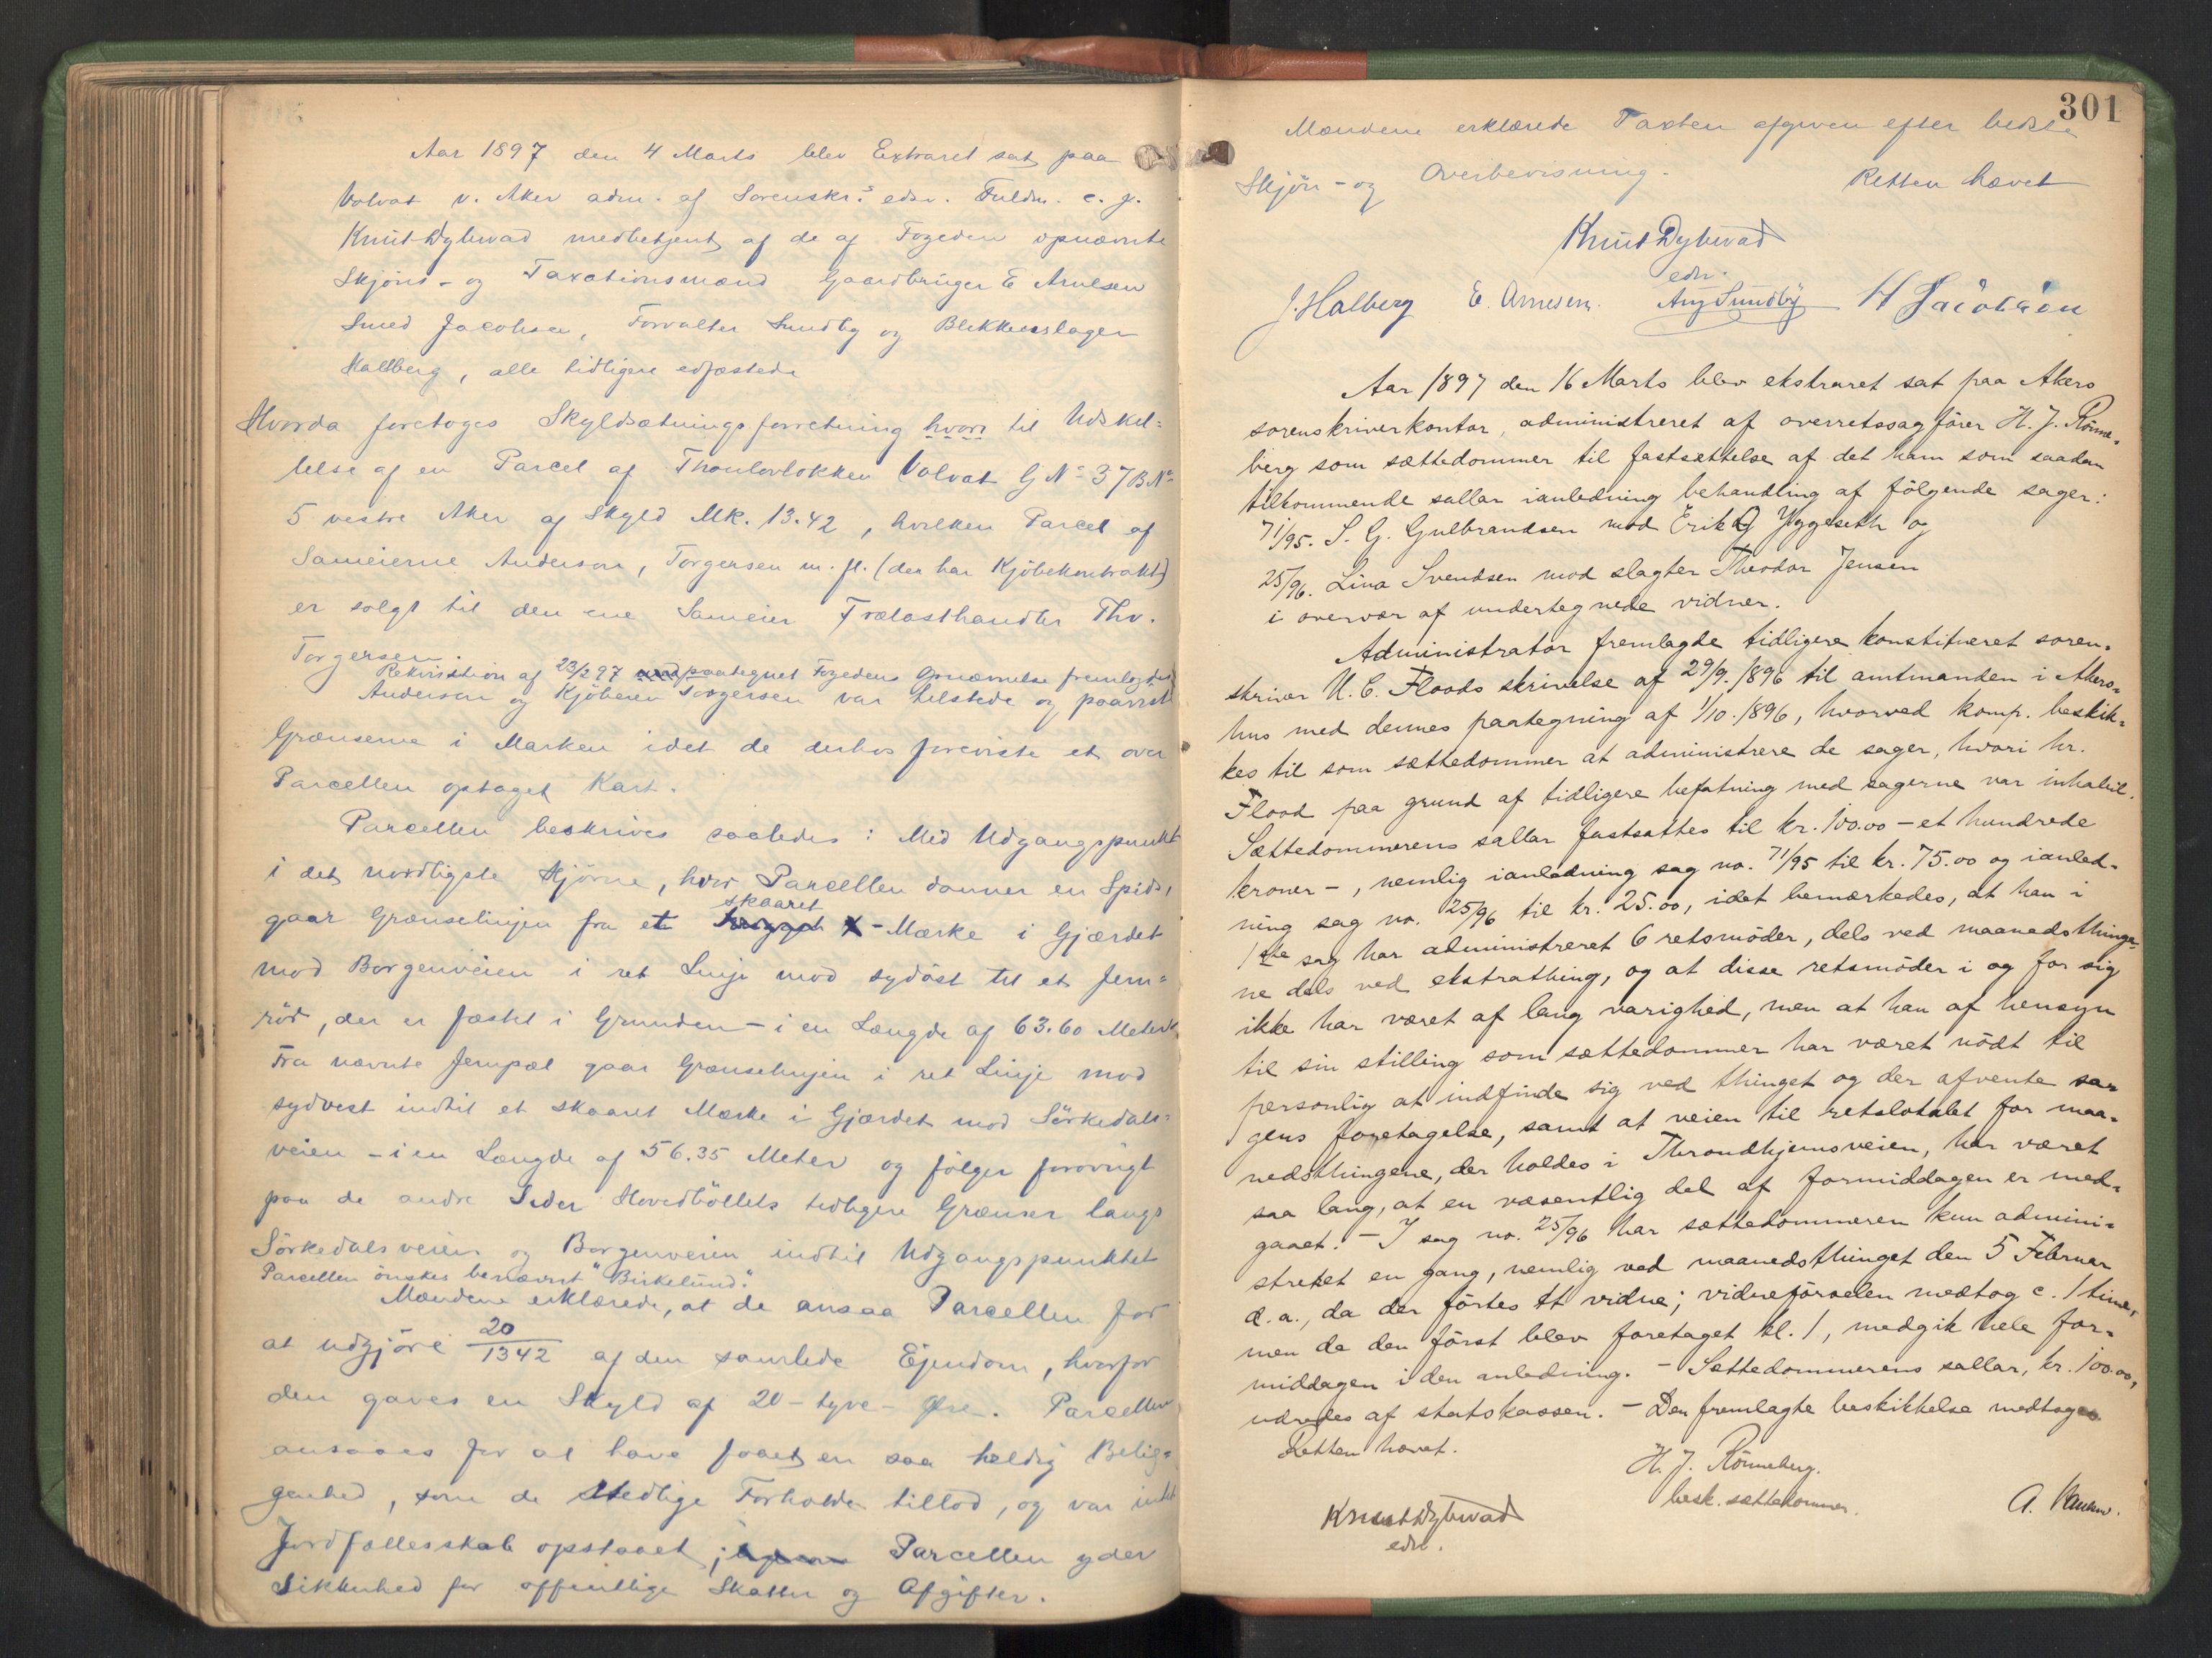 Aar 1897 den 4 Marts blev Extraret sat paa
Volvat v. Aker adm. af Sorenskr.s edsv. Fuldm. c. j.
Knut Dybwad medbetjent af de af Fogeden opnævnte
Skjöns- og Taxationsmænd Gaardbruger E Arnesen
Smed Jacobsen, Forvalter Sundby og Blikkenslager
Hallberg, alle tidligere edfæstede
Hvorda foretoges Skyldsætningsforretning hvori til Udskil=
lelse af en Parcel af Thoulovlokken Volvat G No 37 B.No
5 vestre Aker af Skyld Mk. 13.42, hvilken Parcel af
Sameierne Anderson, Torgersen m. fl. (der har Kjöbekontrakt)
er solgt til den ene Sameier Trælasthandler Thv.
Torgersen.
Rekvisition af 23/2 97 paategnet Fogedens Opnævnelse fremlagdes
Anderson og Kjöberen Torgersen var tilstede og paaviste
Grænserne i Marken idet de derhos foreviste et over
Parcellen optaget Kart.
Parcellen beskrives saaledes: Med Udgangspunkt
i det nordligste Hjörne, hvor Parcellen danner en Spids,
skaaret
gaar Grænselinjen fra et X-Mærke i Gjærdet
mod Borgenveien i ret Linje mod sydöst til et Jern=
röd, der er fæstet i Grunden - i en Længde af 63.60 Meter.
Fra nævnte Jernpæl gaar Grænselinjen i ret Linje mod
sydvest indtil et skaaret Mærke i Gjærdet mod Sörkedals=
veien - i en Længde af 56.35 Meter og fölger forövrigt
paa de andre Sider Hovedböllets tidligere Grænser langs
Sörkedalsveien og Borgenveien indtil Udgangspunktet
Parcellen önskes benævnt "Birkelund".
Mændene erklærede, at de ansaa Parcellen for
at udgjöre 20/1342 af den samlede Eiendom, hvorfor
den gaves en Skyld af 20 - tyve - Øre. Parcellen
ansaaes for at have faaet en saa heldig Belig=
genhed, som de stedlige Forholde tillod, og var intet
Jordfællesskab opstaaet; Parcellen yder
Sikkerhed for offentlige Skatter og Afgifter.
301
Mændene erklærede Taxten afgiven efter bedste
Skjön- og Overbevisning.
Retten hævet
Knut Dybwad
edsv.
J. Halberg E. Arnesen. Aug Sundby H Jacobsen
Aar 1897 den 16 Marts blev ekstraret sat paa Akers
sorenskriverkontor, administreret af overretssagförer H. J. Rönne=
berg som sættedommer til fastsættelse af det ham som saadan
tilkommende sallar ianledning behandling af fölgende sager:
71/95. S. G. Gulbrandsen mod Erik G Yggeseth og
25/96. Lina Svendsen mod slagter Theodor Jensen
i overvær af undertegnede vidner.
Administrator fremlagde tidligere konstitueret soren=
skriver U. C. Floods skrivelse af 29/9. 1896 til amtmanden i Akers=
hus med dennes paategning af 1/10. 1896, hvorved komp. beskik=
kes til som sættedommer at administrere de sager, hvori hr.
Flood paa grund af tidligere befatning med sagerne var inhabil.
Sættedommerens sallar fastsattes til kr. 100.00 - et hundrede
kroner -, nemlig ianledning sag no. 71/95 til kr. 75.00 og ianled=
ning sag no. 25/96 til kr. 25.00, idet bemærkedes, at han i
1ste sag har administreret 6 retsmöder, dels ved maanedsthinge=
ne dels ved ekstrathing, og at disse retsmöder i og for sig
ikke har været af lang varighed, men at han af hensyn
til sin stilling som sættedommer har været nödt til
personlig at indfinde sig ved thinget og der afvente sa=
gens foretagelse, samt at veien til retslokalet for maa=
nedsthingene, der holdes i Throndhjemsveien, har været
saa lang, at en væsentlig del af formiddagen er med=
gaaet. - I sag no. 25/96 har sættedommeren kun admini=
streret en gang, nemlig ved maanedsthinget den 5 Februar
d. a., da der förtes et vidne; vidneförselen medtog c. 1 time,
men da den först blev foretaget kl. 1, medgik hele for=
middagen i den anledning. - Sættedommerens sallar, kr. 100.00,
udredes af statskassen. - Den fremlagte beskikkelse medtages
Retten hævet.
H. J. Rönneberg.
besk. sættedommer.
Knut Dybwad
edsv.
A.